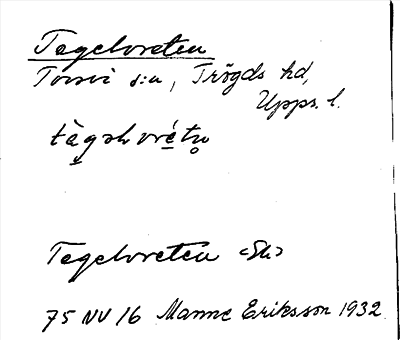 Tegelvreten
Torsvi s:n, Trögds hd,
Upps. l.
tègəlvrétn̥
Tegelvreten <Sk>
75 NV 16 Manne Eriksson 1932